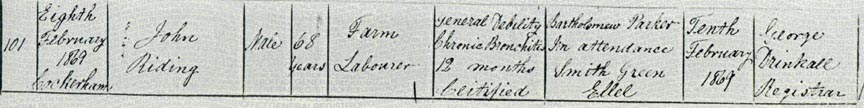 101
Eighth
February
1869
Cockerham
John
Riding
Male
68
years
Farm
Labourer
General Debility
Chronic Bronchitis
12 months
Certified
Bartholomew Parker
In attendance
Smith Green
Ellel
Tenth
February
1869
George
Drinkall
Registrar